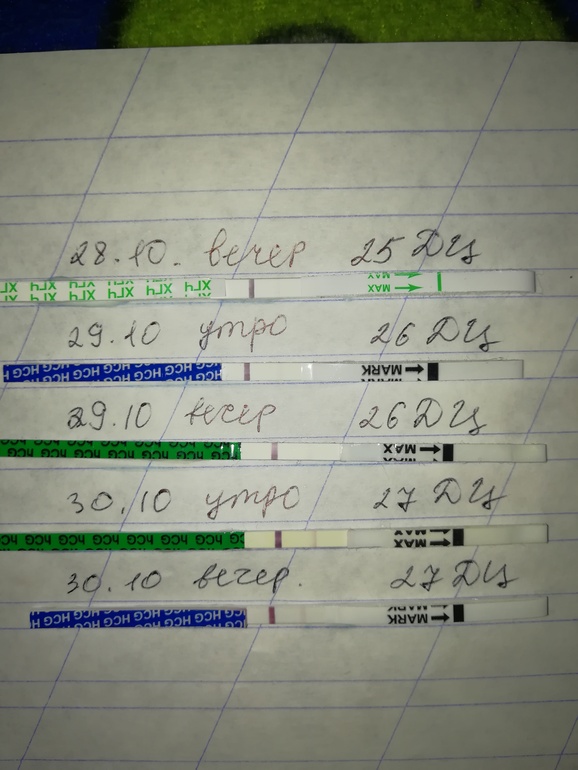 28.10. вечер 25 ДЦ
ХГЧ ХГЧ ХГЧ ХГЧ ХГЧ MAX
29.10 утро 26 ДЦ
HCG HCG HCG HCG HCG HCG MARK
29.10 вечер 26 ДЦ
hCG hCG hCG hCG hCG hCG MAX
30.10 утро 27 ДЦ
hCG hCG hCG hCG hCG hCG MAX
30.10 вечер. 27 ДЦ
HCG HCG HCG HCG HCG HCG MARK